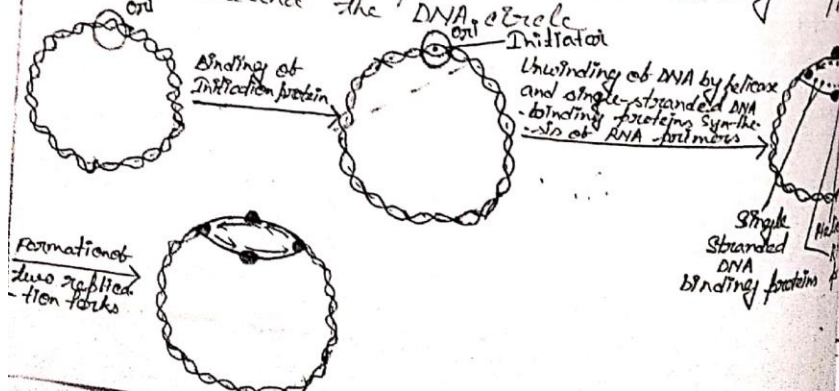 the DNA circle
ori
Binding of
Initiation protein
ori
Initiator
Unwinding of DNA by helicase
and single-stranded DNA
-binding proteins Synthe-
-sis of RNA primers
Single
Stranded
DNA
binding proteins
Formation of
two replica
-tion forks